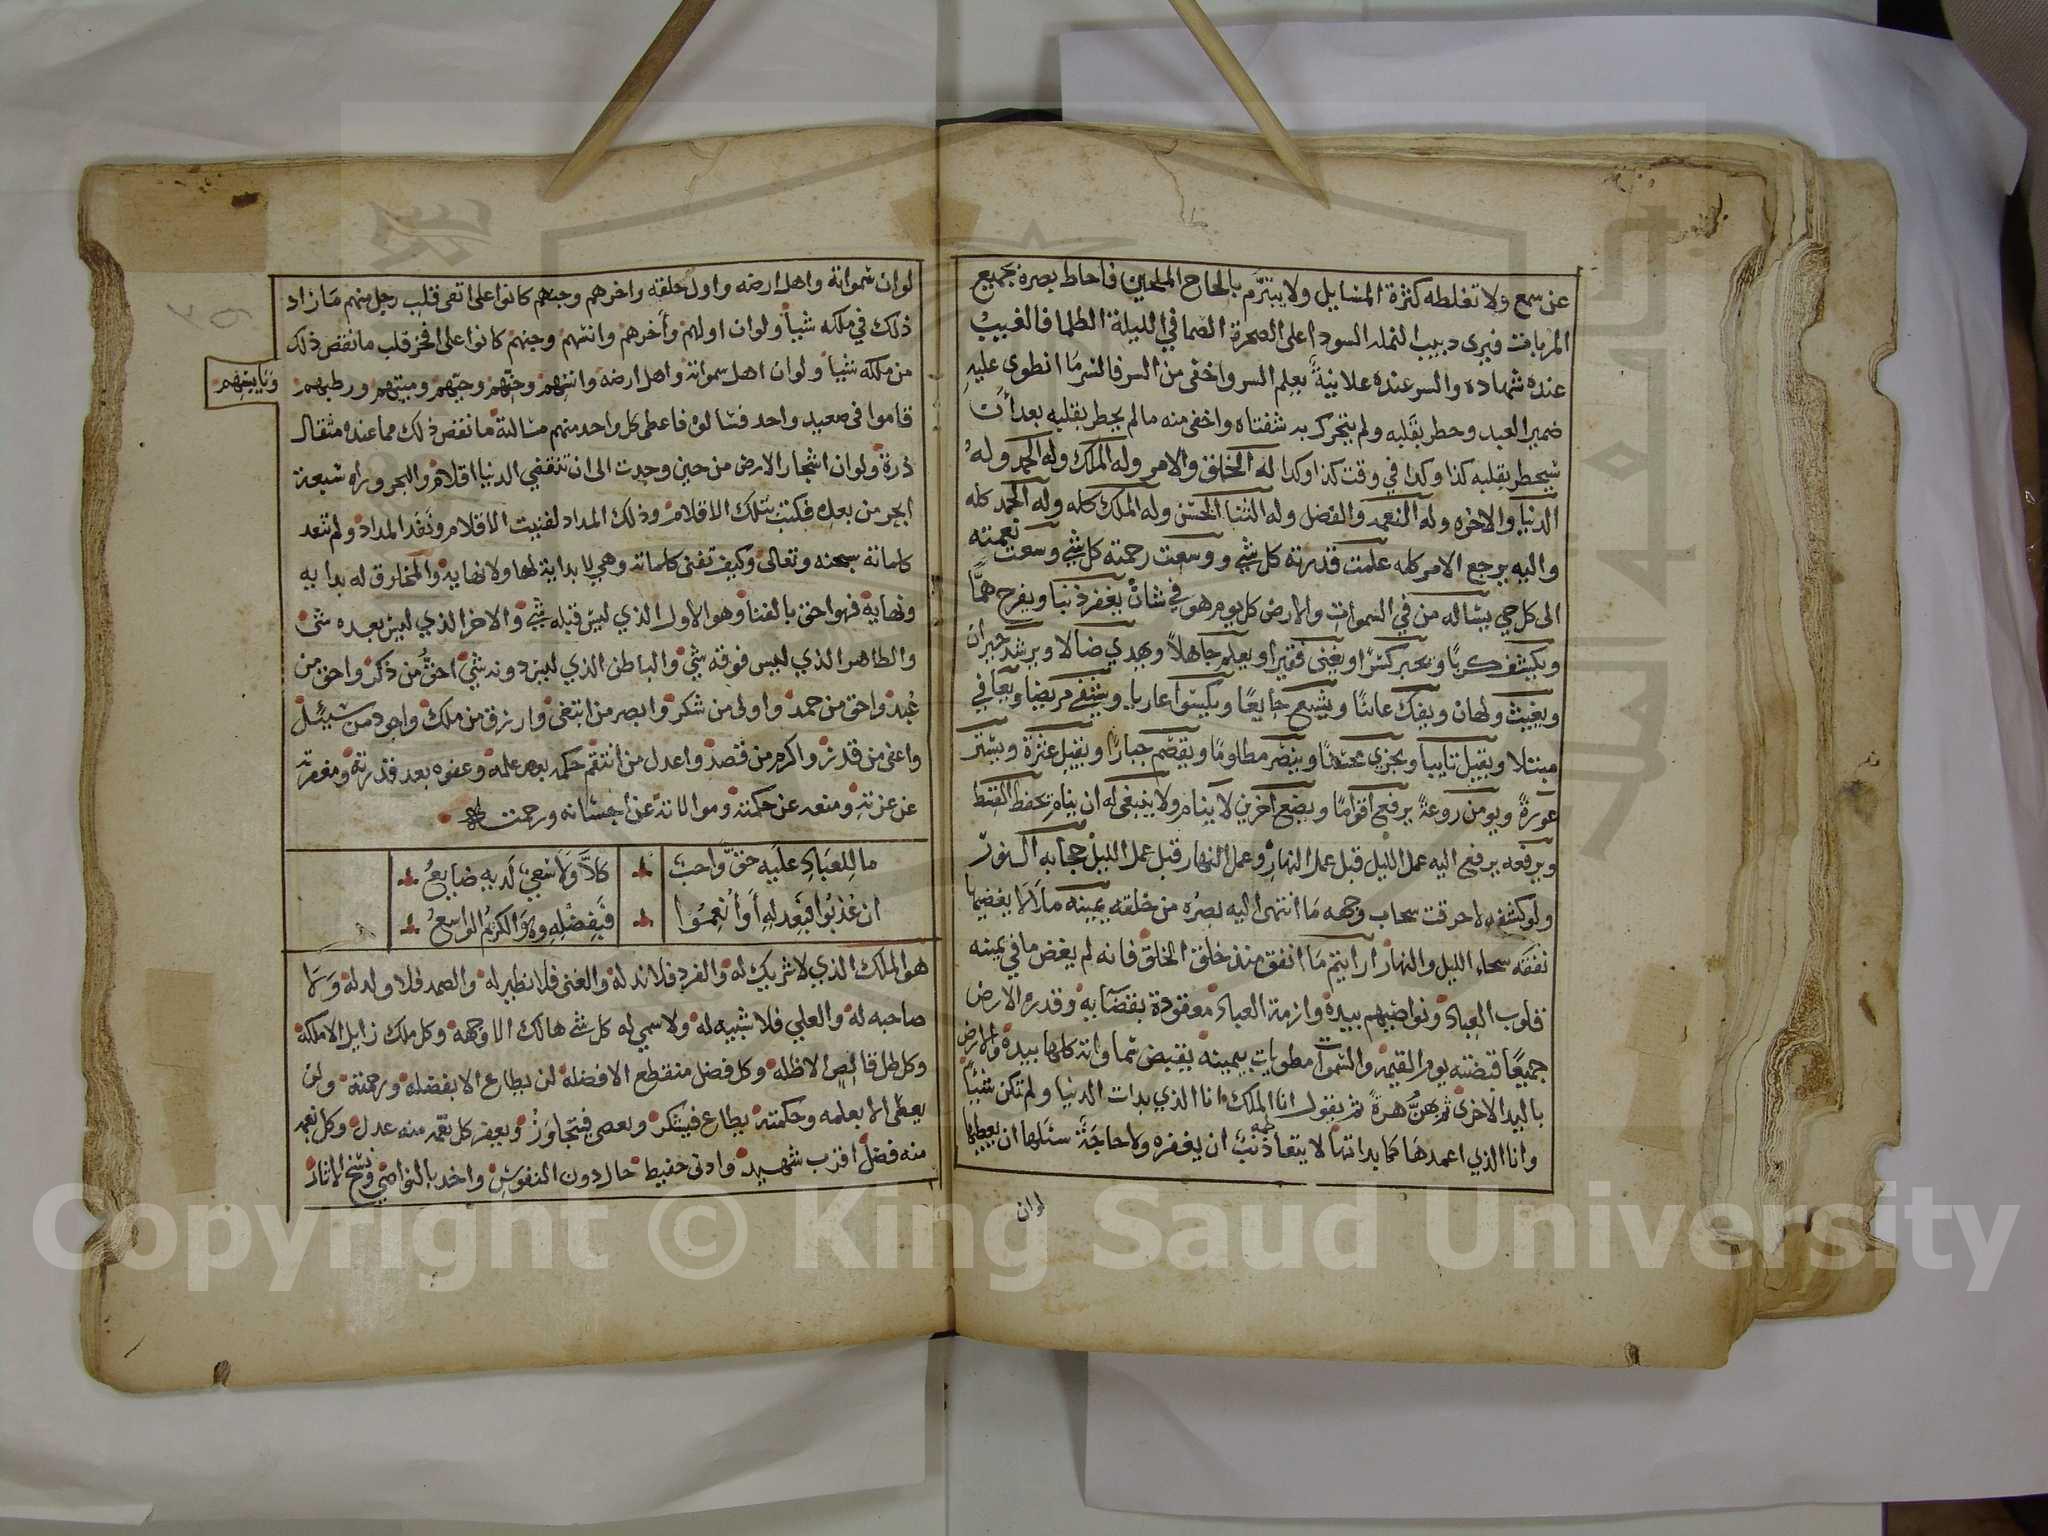 عن سمع ولا تغلطه كثرة المسايل ولا يتبرّم بالحاح الملحين فاحاط بصره بجميع
المربات فيرى دبيب النمله السودا على الصخرة الصما في الليلة الظلما فالغيب
عنده شهاده والسر عنده علانيةً يعلم السر واخفى من السر فالسر مَا انطوى عليهِ
ضمير العبد وخطر بقَلبه ولم يتحرك به شفتاه واخفى منه ما لم يخطر بقلبه بعد أن
سيخطر بقلبه كذا وكذا في وقت كذا وكذا له الخلق والامر وله الملك وله الحمد ولهُ
الدنيا والاخره وله النعمه والفضل وله الثنا الحَسَن وله الملك كله وله الحمد كله
واليه يرجع الامر كله علمت قدرته كل شي ووسعت رحمته كل شي وسعت نعمته
الى كل حي يساله من في السموات والارض كل يوم هو في شان يغفر ذنبًا ويفرج همًّا
ويكشف كربًا ويجبر كسرًا ويغنى فقيرا ويعلم جَاهلاً ويهدي ضالا ويرشد حيران
ويغيث ولهان ويفك عانيًا ويشبع جايعًا ويكسوا عاريا ويشفي مريضا ويعافي
مبتلا ويقبل تايبا ويجزي محسنًا وينصر مظلومًا ويقصم جبارًا ويقيل عثرةً ويستر
عَورةً ويومن روعةً يرفع اقوامًا ويضع آخرين لا ينام ولا ينبغي له ان ينام يخفظ القسط
ويرفعه يرفع اليه عمل الليل قبل عمل النهار وعمل النهار قبل عمل الليل حجابه النورُ
ولو كشفه لاحرقت سحاب وجهه مَا انتهى اليه بصرُه من خلقه يمينه ملآلا لا يغضيها
نفقَه سحاء الليل والنهار ارايتم مَا انفق منذ خلق الخلق فانه لم يغض ما في يمينه
قلوب العِباد ونواصيهم بيدهِ وازمة العباد معقودة بقضَآيه وقدره الارض
جميعًا قبضته يوم القيمه والسموات مطويات بيمينه يقبض سماواته كلها بيده والارض
باليد الاخرى ثم يهزُّهن هزةً ثم يقول انا الملك انا الذي بدات الدنيا ولم تكن شيئًا
وانا الذي اعيدها كما بداتها لا يتعاظمه ذنبٌ ان يغفره ولا حاجَةً سئلها ان يعطيها
لو ان
لو ان سمواته واهل ارضه واول خلقه واخرهم وجنهم كانوا على اتقى قلب رجل منهم مَا زاد
ذلك في ملكه شيأ ولو ان اولهم وأخرهم وانسهم وجنهم كانوا على افجر قلب ما نقص ذلك
من ملكه شيا ولو ان اهل سمواته واهل ارضه وانسهم وجنّهم وحيّهم وميتهم ورطبهم
ويَابِسهم
قاموا في صعيد واحد فسالوه فاعطى كل واحد منهم مسالتة ما نقص ذلك مما عنده مثقال
ذرة ولو ان اشجار الارض من حين وجدت الى ان تنقضي الدنيا اقلام والبحر وراه سبعة
ابحر من بعده فكتبت بتلك الاقلام وذلك المداد لفنيت الاقلام ونَفَد المداد ولم تنفد
كلماته سبحنه وتعالى وكيف تفنى كلماته وهي لا بداية لها ولا نهايه والمخلوق له بدايه
ونهاية فهو احق بالفنا وهو الاول الذي ليس قبله شي والاخر الذي ليس بعده شى
والظاهر الذي ليس فوقه شي والباطن الذي ليس دونه شي احقُ من ذكر واحق من
عُبد واحق من حمد واولى من شكر وابصر من ابتغى وارزق من ملك واجود من سيئل
واعفى من قدر واكرم من قصد واعدل من انتقم حكمه بعد علمه وعفوه بعد قدرته ومغفرته
عن عزته ومنعه عن حكمته وموالاته عن احسانه ورحمته
ما لِلعبَادِ علَيه حقٌّ واجبُ كلاَّ وَلَا سَعْيٌ لَديهِ ضايعُ
ان عُذِبُوا فبَعِدلِهِ أَو أُنعِمُوا فَبِفضْلِهِ وهوَ الكريمُ الواسعُ
هو الملك الذي لا شريك له والفرد فلا ند له والغنى فلا نظير له والصمد فلا ولد له وَلَا
صاحبه له والعلي فلا شبيه له ولا سمي له كل شى هالك الا وجهه وكل ملك زايل الا ملكه
وكل ظل قالِص الا ظله وكل فضل منقطع الا فضله لن يطاع الا بفضله ورحمته ولن
يعصَى الا بعلمه وحكمته يطاع فيشكر ويعصى فيتجاوز ويغفر كل نقمه منه عدل وكل نعمه
منه فضل اقرب شهيد وادنى حفيظ حال دون النفوس واخد بالنواصي ونسخ الاثار